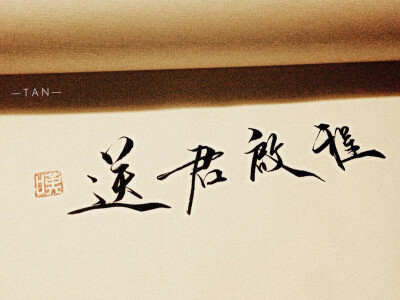 —TAN—
送君啟程
嘆